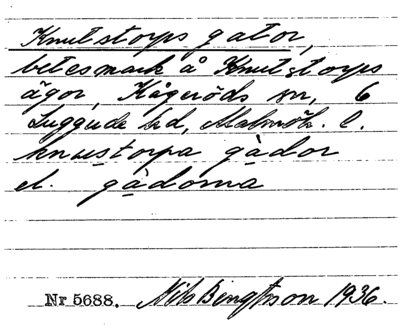 Knutstorps gator,
betesmark å Knutstorps
ägor, Kågeröds sn, 6
Luggude hd, Malmöh. l.
knustorpa gàdor
el. gàdorna
Nr 5688. Nils Bengtsson 1936.